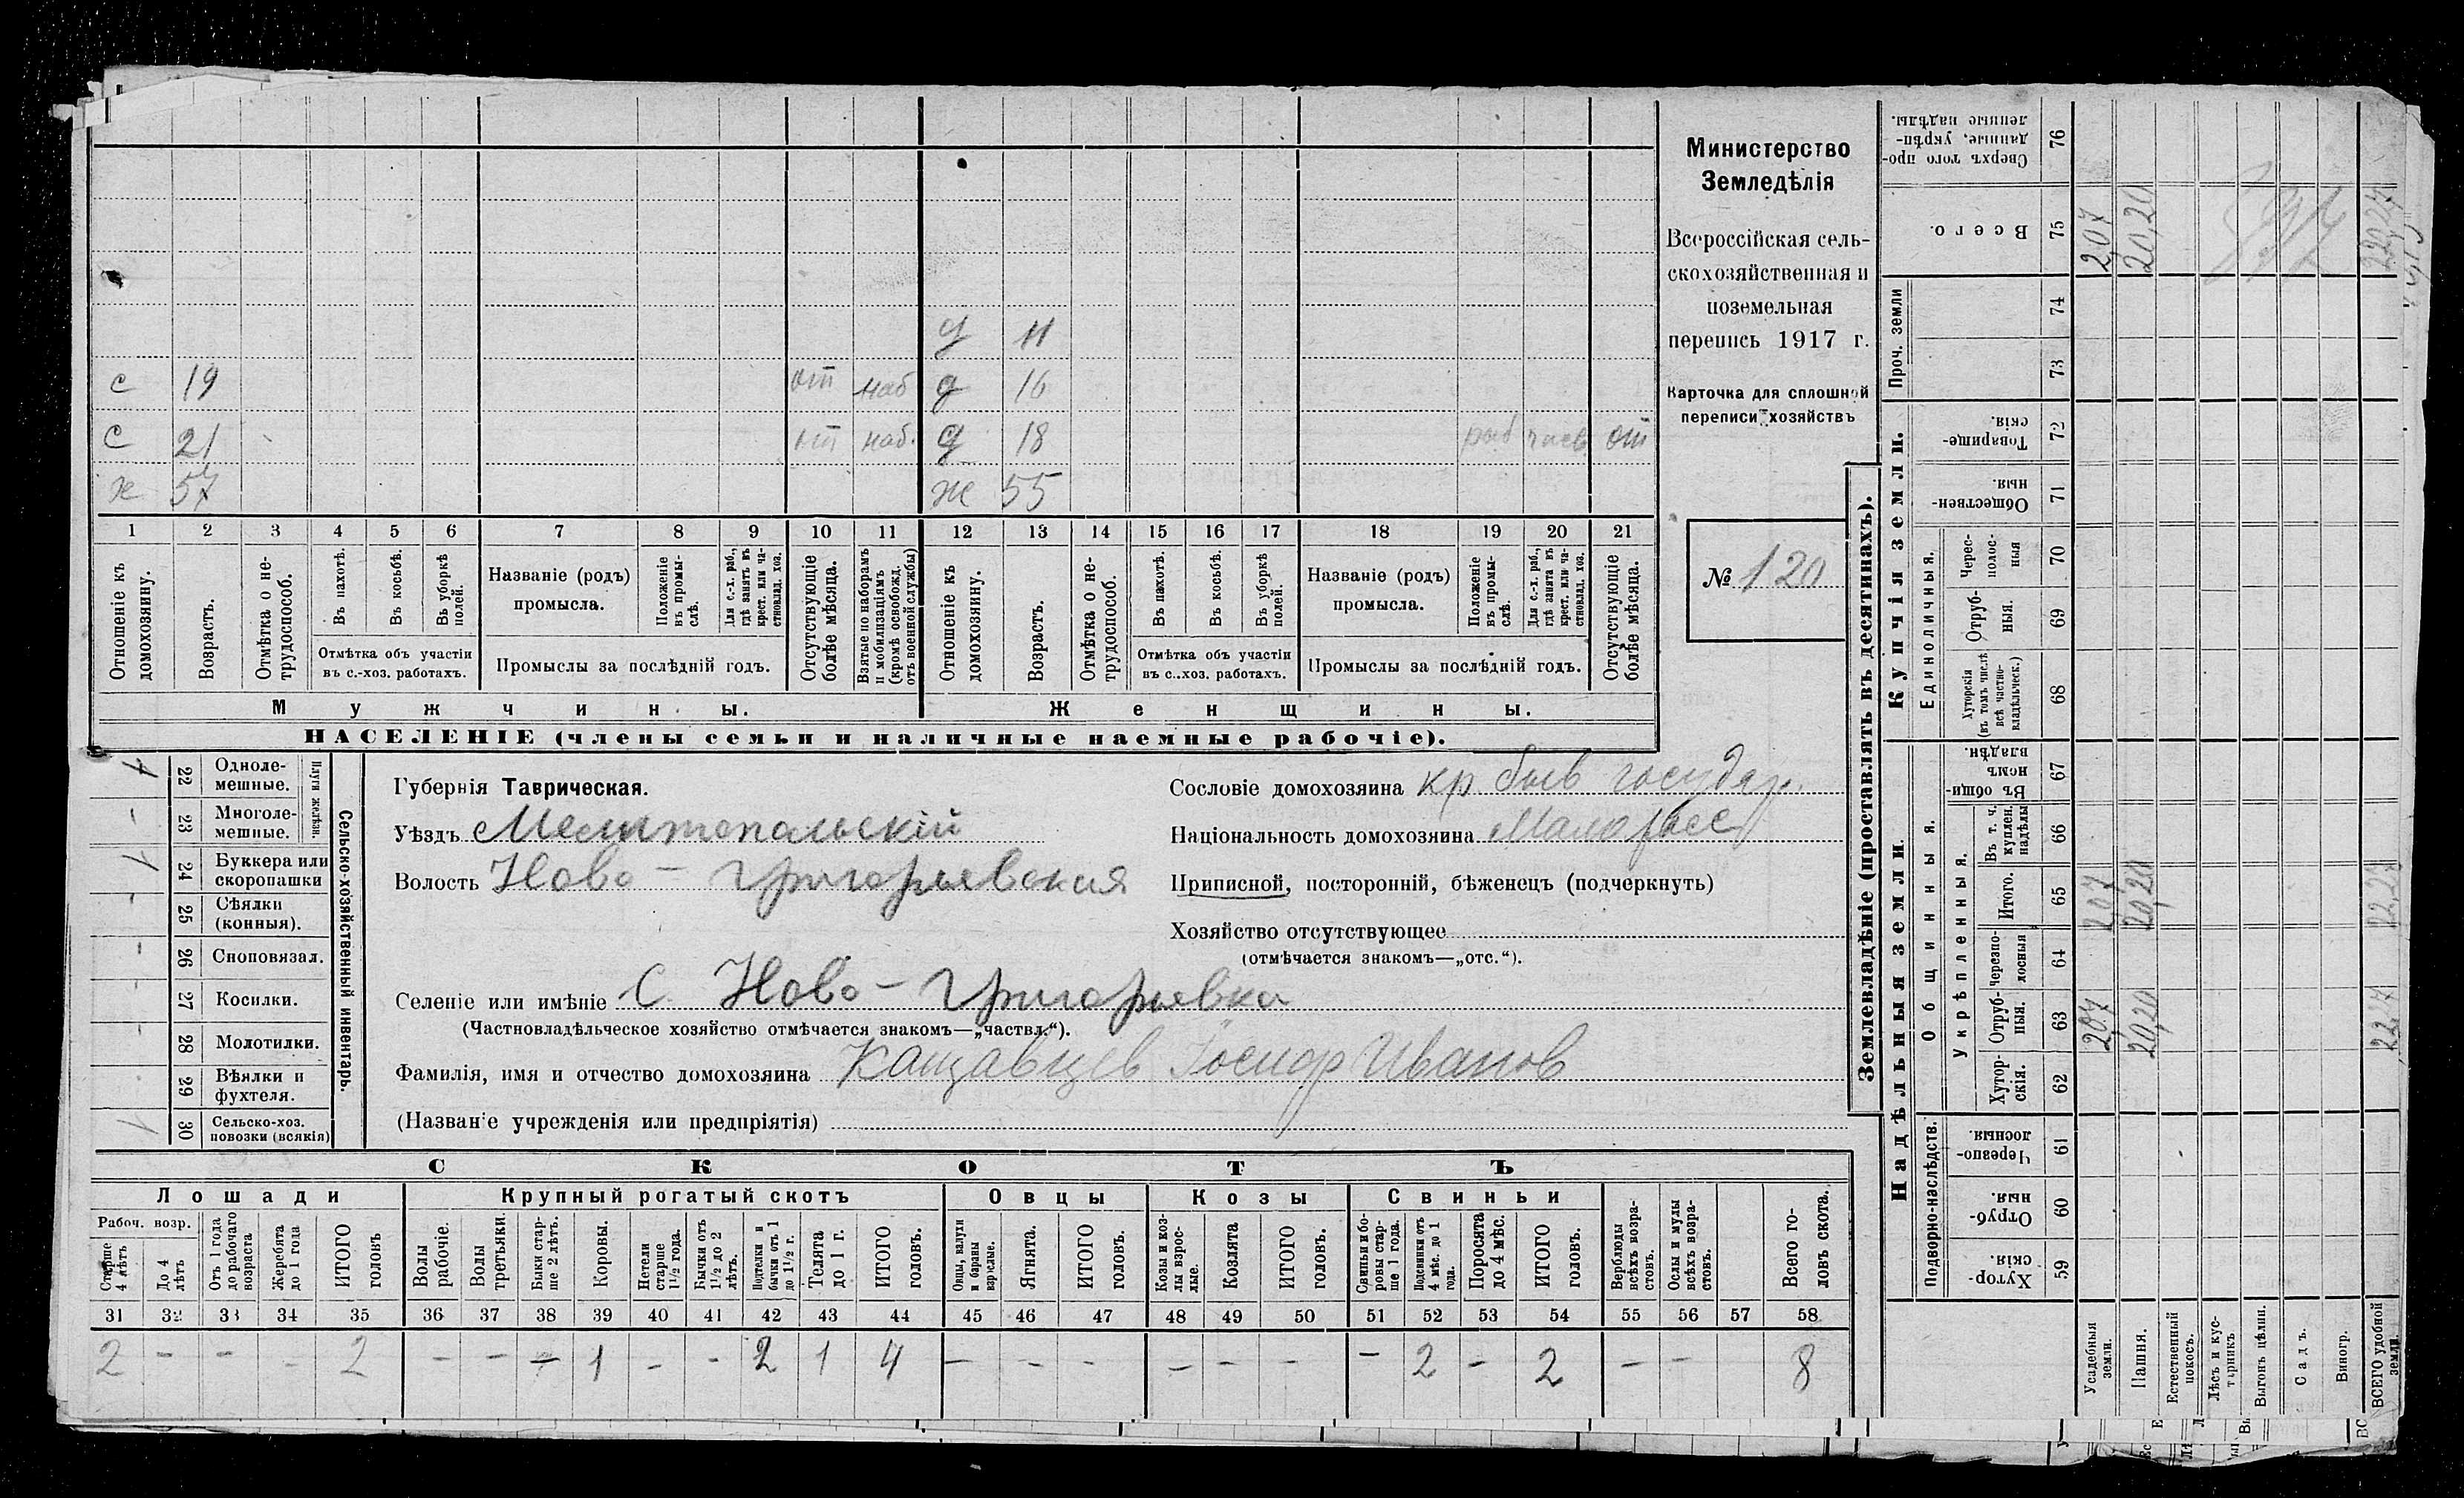 Министерство
Земледѣлія
Всероссійская сель-
скохозяйственная и
поземельная
перепись 1917 г.
Карточка для сплошной
переписи хозяйствъ
№ 120
д 11
с 19 от наб д 16
с 21 от наб. д 18 от
х 57 ж 55
1 2 3 4 5 6 7 8 9 10 11 12 13 14 15 16 17 18 19 20 21
Отношеніе къ домохозяину.
Возрастъ.
Отмѣтка о не-трудоспособ.
Въ пахотѣ.
Въ косьбѣ.
Въ уборкѣ полей.
Отмѣтка объ участіи
въ с.-хоз. работахъ.
Названіе (родъ)
промысла.
Положеніе въ промы-слѣ.
Для с.-х. раб., гдѣ занятъ въ крест. или ча-стновлад. хоз.
Промыслы за послѣдній годъ.
Отсутствующіе болѣе мѣсяца.
Взятые по наборамъ и мобилизаціямъ (кромѣ освобожд. отъ военной службы)
Отношеніе къ домохозяину.
Возрастъ.
Отмѣтка о не-трудоспособ.
Въ пахотѣ.
Въ косьбѣ.
Въ уборкѣ полей.
Отмѣтка объ участіи
въ с.-хоз. работахъ.
Названіе (родъ)
промысла.
Положеніе въ промы-слѣ.
Для с.-х. раб., гдѣ занята въ крест. или ча-стновлад. хоз.
Промыслы за послѣдній годъ.
Отсутствующіе болѣе мѣсяца.
Мужчины. Женщины.
НАСЕЛЕНІЕ (члены семьи и наличные наемные рабочіе).
Сельско-хозяйственный инвентарь.
Плуги желѣзн.
22 Одноле-мешные. 1
23 Многоле-мешные. -
24 Буккера или скоропашки 1
25 Сѣялки (конныя). -
26 Сноповязал. -
27 Косилки. -
28 Молотилки. -
29 Вѣялки и фухтеля.
30 Сельско-хоз. повозки (всякія) 1
Губернія Таврическая.
Уѣздъ Мелитопольскій
Волость Ново-Григорьевская
Селеніе или имѣніе С. Ново-Григорьевка
(Частновладѣльческое хозяйство отмѣчается знакомъ—„частвл.“).
Фамилія, имя и отчество домохозяина Кащавцев Іосиф Иванов
(Названіе учрежденія или предпріятія)
Сословіе домохозяина кр. быв государ.
Національность домохозяина Малоросс
Приписной, посторонній, бѣженецъ (подчеркнуть)
Хозяйство отсутствующее
(отмѣчается знакомъ—„отс.“).
СКОТЪ
Лошади Крупный рогатый скотъ Овцы Козы Свиньи
Рабоч. возр.
Старше 4 лѣтъ
До 4 лѣтъ
Отъ 1 года до рабочаго возраста
Жеребята до 1 года
ИТОГО головъ
Волы рабочіе.
Волы третьяки.
Быки стар-ше 2 лѣтъ.
Коровы.
Нетели старше 1½ года.
Бычки отъ 1½ до 2 лѣтъ.
Подтелки и бычки отъ 1 до 1½ г.
Телята до 1 г.
ИТОГО головъ.
Овцы, валухи и бараны взрослые.
Ягнята.
ИТОГО головъ.
Козы и коз-лы взрос-лые.
Козлята
ИТОГО головъ.
Свиньи и бо-ровы стар-ше 1 года.
Подсвинки отъ 4 мѣс. до 1 года.
Поросята до 4 мѣс.
ИТОГО головъ.
Верблюды всѣхъ возра-стовъ.
Ослы и мулы всѣхъ возра-стовъ.
Всего го-ловъ скота.
31 32 33 34 35 36 37 38 39 40 41 42 43 44 45 46 47 48 49 50 51 52 53 54 55 56 57 58
2 - - - 2 - - - 1 - - 2 1 4 - - - - - - - 2 - 2 - - 8
Землевладѣніе (проставлять въ десятинахъ).
Надѣльныя земли. Купчія земли. Проч. земли
Подворно-наслѣдств. Общинныя. Единоличныя.
Укрѣпленныя.
59 Хутор-скія.
60 Отруб-ныя.
61 Черезпо-лосныя.
62 Хутор-скія.
63 Отруб-ныя.
64 Черезпо-лосныя
65 Итого.
66 Въ т. ч. куплен. надѣлы
67 Въ общи-номъ владѣн.
68 Хуторскія (въ томъ числѣ всѣ частно-владѣльческ.)
69 Отруб-ныя.
70 Черес-полос-ныя
71 Обществен-ныя.
72 Товарище-скія.
73
74
75 Всего.
76 Сверхъ того про-данные, укрѣп-ленные надѣлы.
Усадебныя земли. 2,07 2,07 2,07
Пашня. 20,20 20,20 20,20
Естественный покосъ.
Лѣсъ и кус-тарникъ
Выгонъ цѣлин.
Садъ.
Виногр.
ВСЕГО удобной земли. 22,27 22,27 22,27